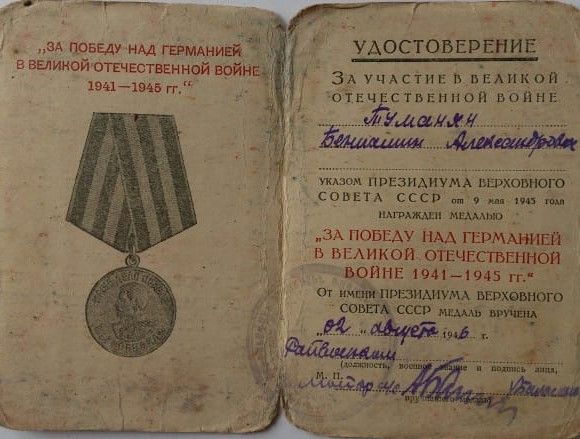 „ЗА ПОБЕДУ НАД ГЕРМАНИЕЙ
В ВЕЛИКОЙ ОТЕЧЕСТВЕННОЙ ВОЙНЕ
1941—1945 гг.“
УДОСТОВЕРЕНИЕ
ЗА УЧАСТИЕ В ВЕЛИКОЙ
ОТЕЧЕСТВЕННОЙ ВОЙНЕ
Туманян
Бениамин Александрович
УКАЗОМ ПРЕЗИДИУМА ВЕРХОВНОГО
СОВЕТА СССР от 9 мая 1945 года
НАГРАЖДЕН МЕДАЛЬЮ
„ЗА ПОБЕДУ НАД ГЕРМАНИЕЙ
В ВЕЛИКОЙ ОТЕЧЕСТВЕННОЙ
ВОЙНЕ 1941—1945 гг.“
От имени ПРЕЗИДИУМА ВЕРХОВНОГО
СОВЕТА СССР МЕДАЛЬ ВРУЧЕНА
„02“ августа 1946 г.
Райвоенком
(должность, военное звание и подпись лица,
М. П.
майор